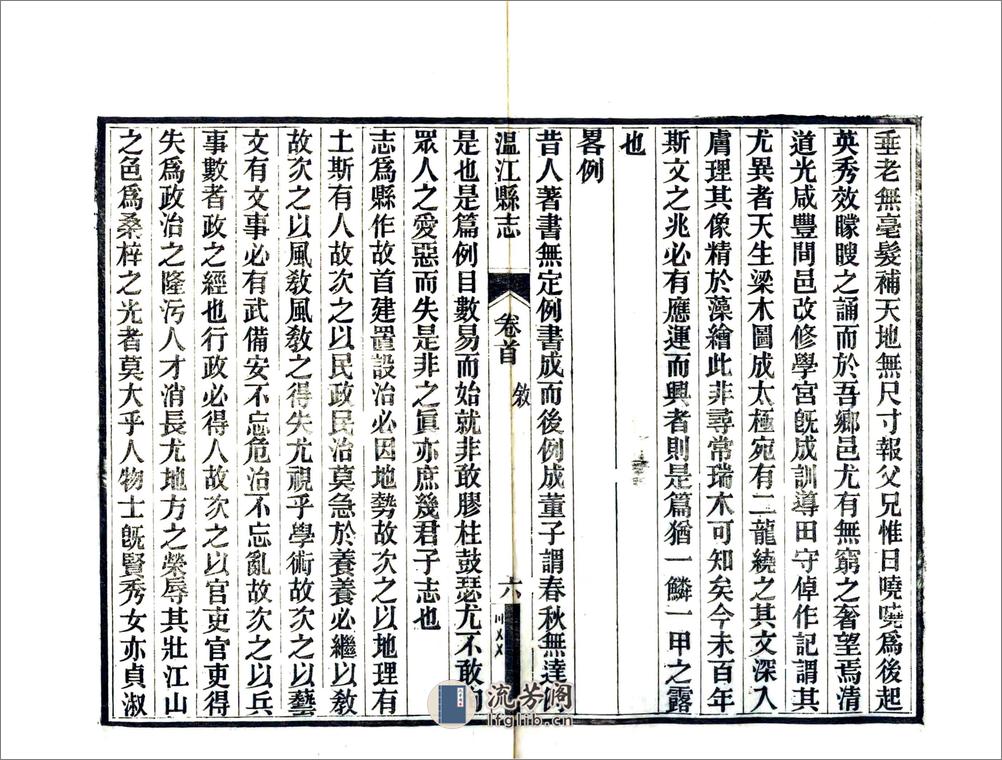 垂老無毫髮補天地無尺寸報父兄惟日嘵嘵爲後起
英秀效矇瞍之誦而於吾鄉邑尤有無窮之奢望焉清
道光咸豐間邑改修學宮旣成訓導田守倬作記謂其
尤異者天生梁木圖成太極宛有二龍繞之其文深入
膚理其像精於藻繪此非尋常瑞木可知矣今未百年
斯文之兆必有應運而興者則是篇猶一鱗一甲之露
也
畧例
昔人著書無定例書成而後例成董子謂春秋無達
溫江縣志
卷首
敘
六
是也是篇例目數易而始就非敢膠柱鼓瑟尤不敢
眾人之愛惡而失是非之眞亦庶幾君子志也
志爲縣作故首建置設治必因地勢故次之以地理有
土斯有人故次之以民政民治莫急於養養必繼以敎
故次之以風敎風敎之得失尤視乎學術故次之以藝
文有文事必有武備安不忘危治不忘亂故次之以兵
事數者政之經也行政必得人故次之以官吏官吏得
失爲政治之隆污人才消長尤地方之榮辱其壯江山
之色爲桑梓之光者莫大乎人物士旣賢秀女亦貞淑
流芳阁
lfglib.cn